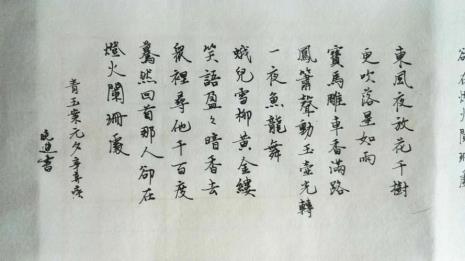 卻在燈火闌珊處
東風夜放花千樹
更吹落星如雨
寶馬雕車香滿路
鳳簫聲動玉壺光轉
一夜魚龍舞
蛾兒雪柳黃金縷
笑語盈々暗香去
眾裡尋他千百度
驀然回首那人卻在
燈火闌珊處
青玉案元夕辛棄疾
書